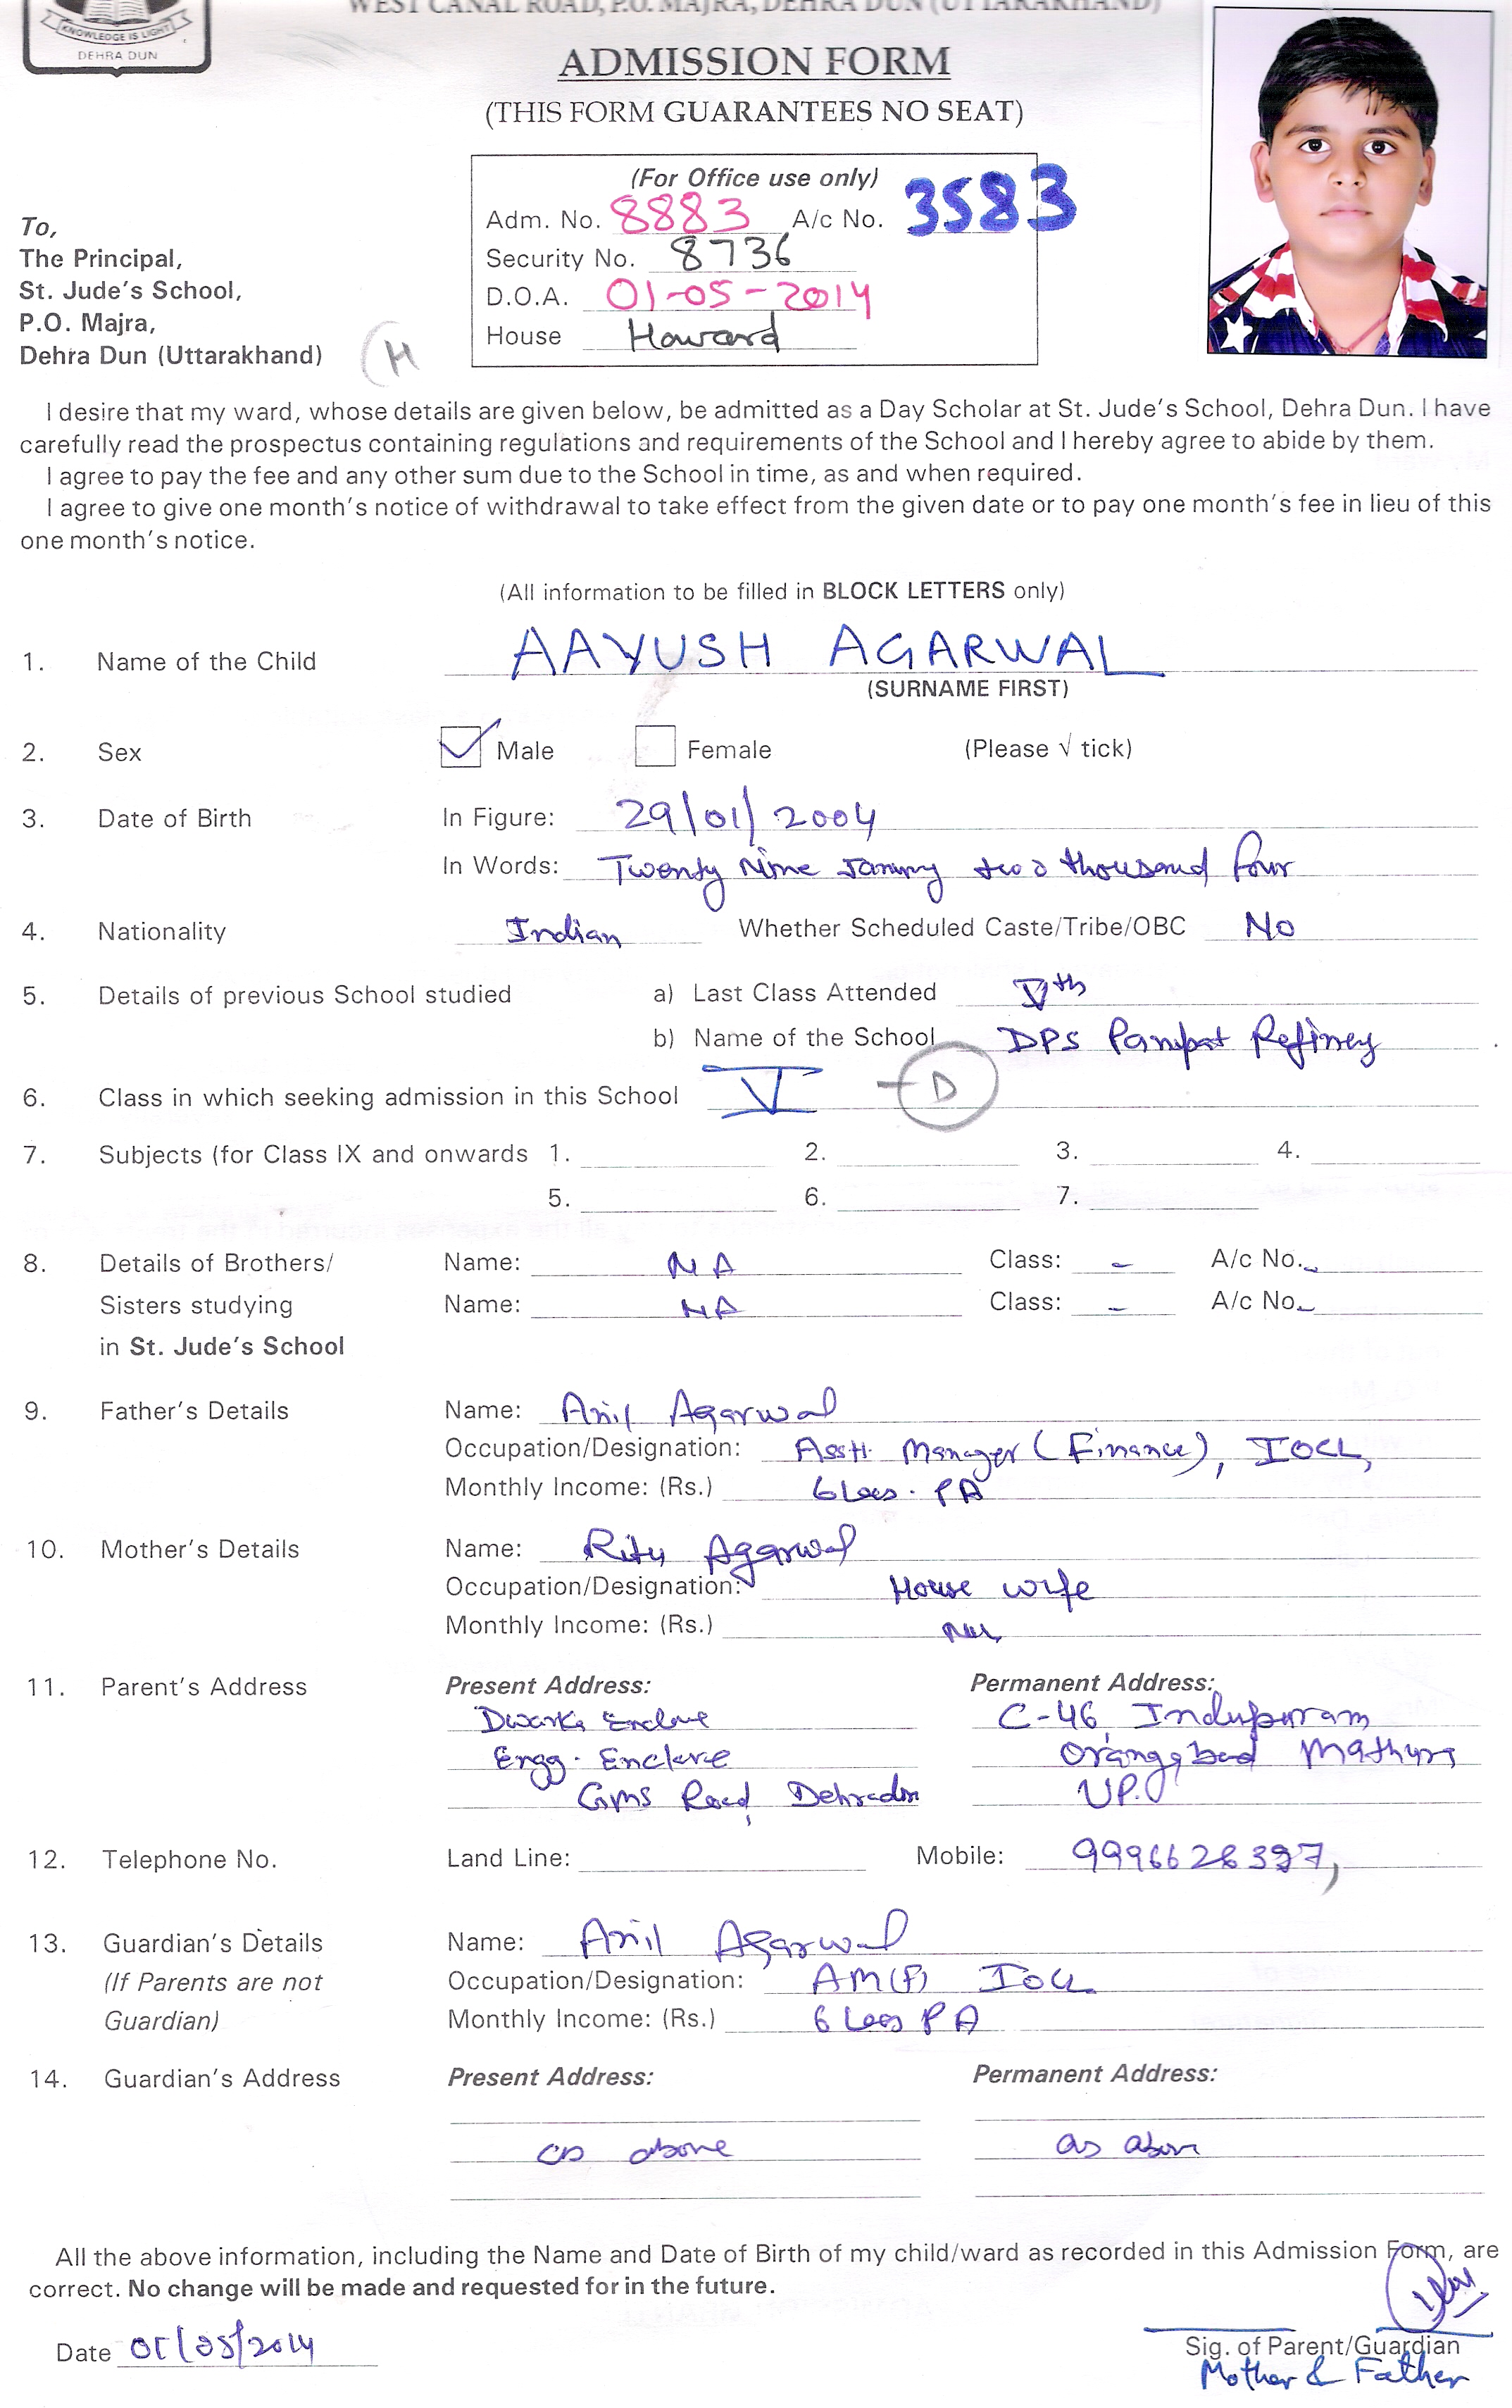 WEST CANAL ROAD, P.O. MAJRA, DEHRA DUN (UTTARAKHAND)
KNOWLEDGE IS LIGHT
DEHRA DUN
ADMISSION FORM
(THIS FORM GUARANTEES NO SEAT)
(For Office use only)
Adm. No. 8883 A/c No. 3583
Security No. 8736
D.O.A. 01-05-2014
House Howard
To,
The Principal,
St. Jude's School,
P.O. Majra,
Dehra Dun (Uttarakhand) H
I desire that my ward, whose details are given below, be admitted as a Day Scholar at St. Jude's School, Dehra Dun. I have
carefully read the prospectus containing regulations and requirements of the School and I hereby agree to abide by them.
I agree to pay the fee and any other sum due to the School in time, as and when required.
I agree to give one month's notice of withdrawal to take effect from the given date or to pay one month's fee in lieu of this
one month's notice.
(All information to be filled in BLOCK LETTERS only)
1. Name of the Child AAYUSH AGARWAL
(SURNAME FIRST)
2. Sex Male Female (Please √ tick)
3. Date of Birth In Figure: 29/01/2004
In Words: Twenty Nine two thousand four
4. Nationality Indian Whether Scheduled Caste/Tribe/OBC No
5. Details of previous School studied a) Last Class Attended Vth
b) Name of the School DPS Panipat Refinery
6. Class in which seeking admission in this School V - D
7. Subjects (for Class IX and onwards 1. 2. 3. 4.
5. 6. 7.
8. Details of Brothers/ Name: NA Class: - A/c No. -
Sisters studying Name: NA Class: - A/c No. -
in St. Jude's School
9. Father's Details Name: Anil Agarwal
Occupation/Designation: Asstt. Manager (Finance), IOCL,
Monthly Income: (Rs.) 6 Lacs. PA
10. Mother's Details Name: Ritu Agarwal
Occupation/Designation: House wife
Monthly Income: (Rs.)
11. Parent's Address Present Address: Permanent Address:
Dwarka Enclave C-46, Indupuram
Engg. Enclave Mathura
GMS Road, Dehradun UP.
12. Telephone No. Land Line: Mobile:
13. Guardian's Details Name: Anil Agarwal
(If Parents are not Occupation/Designation: AM(F) IOCL
Guardian) Monthly Income: (Rs.) 6 Lacs PA
14. Guardian's Address Present Address: Permanent Address:
as above as above
All the above information, including the Name and Date of Birth of my child/ward as recorded in this Admission Form, are
correct. No change will be made and requested for in the future.
Date 01/05/2014 Sig. of Parent/Guardian
Mother & Father